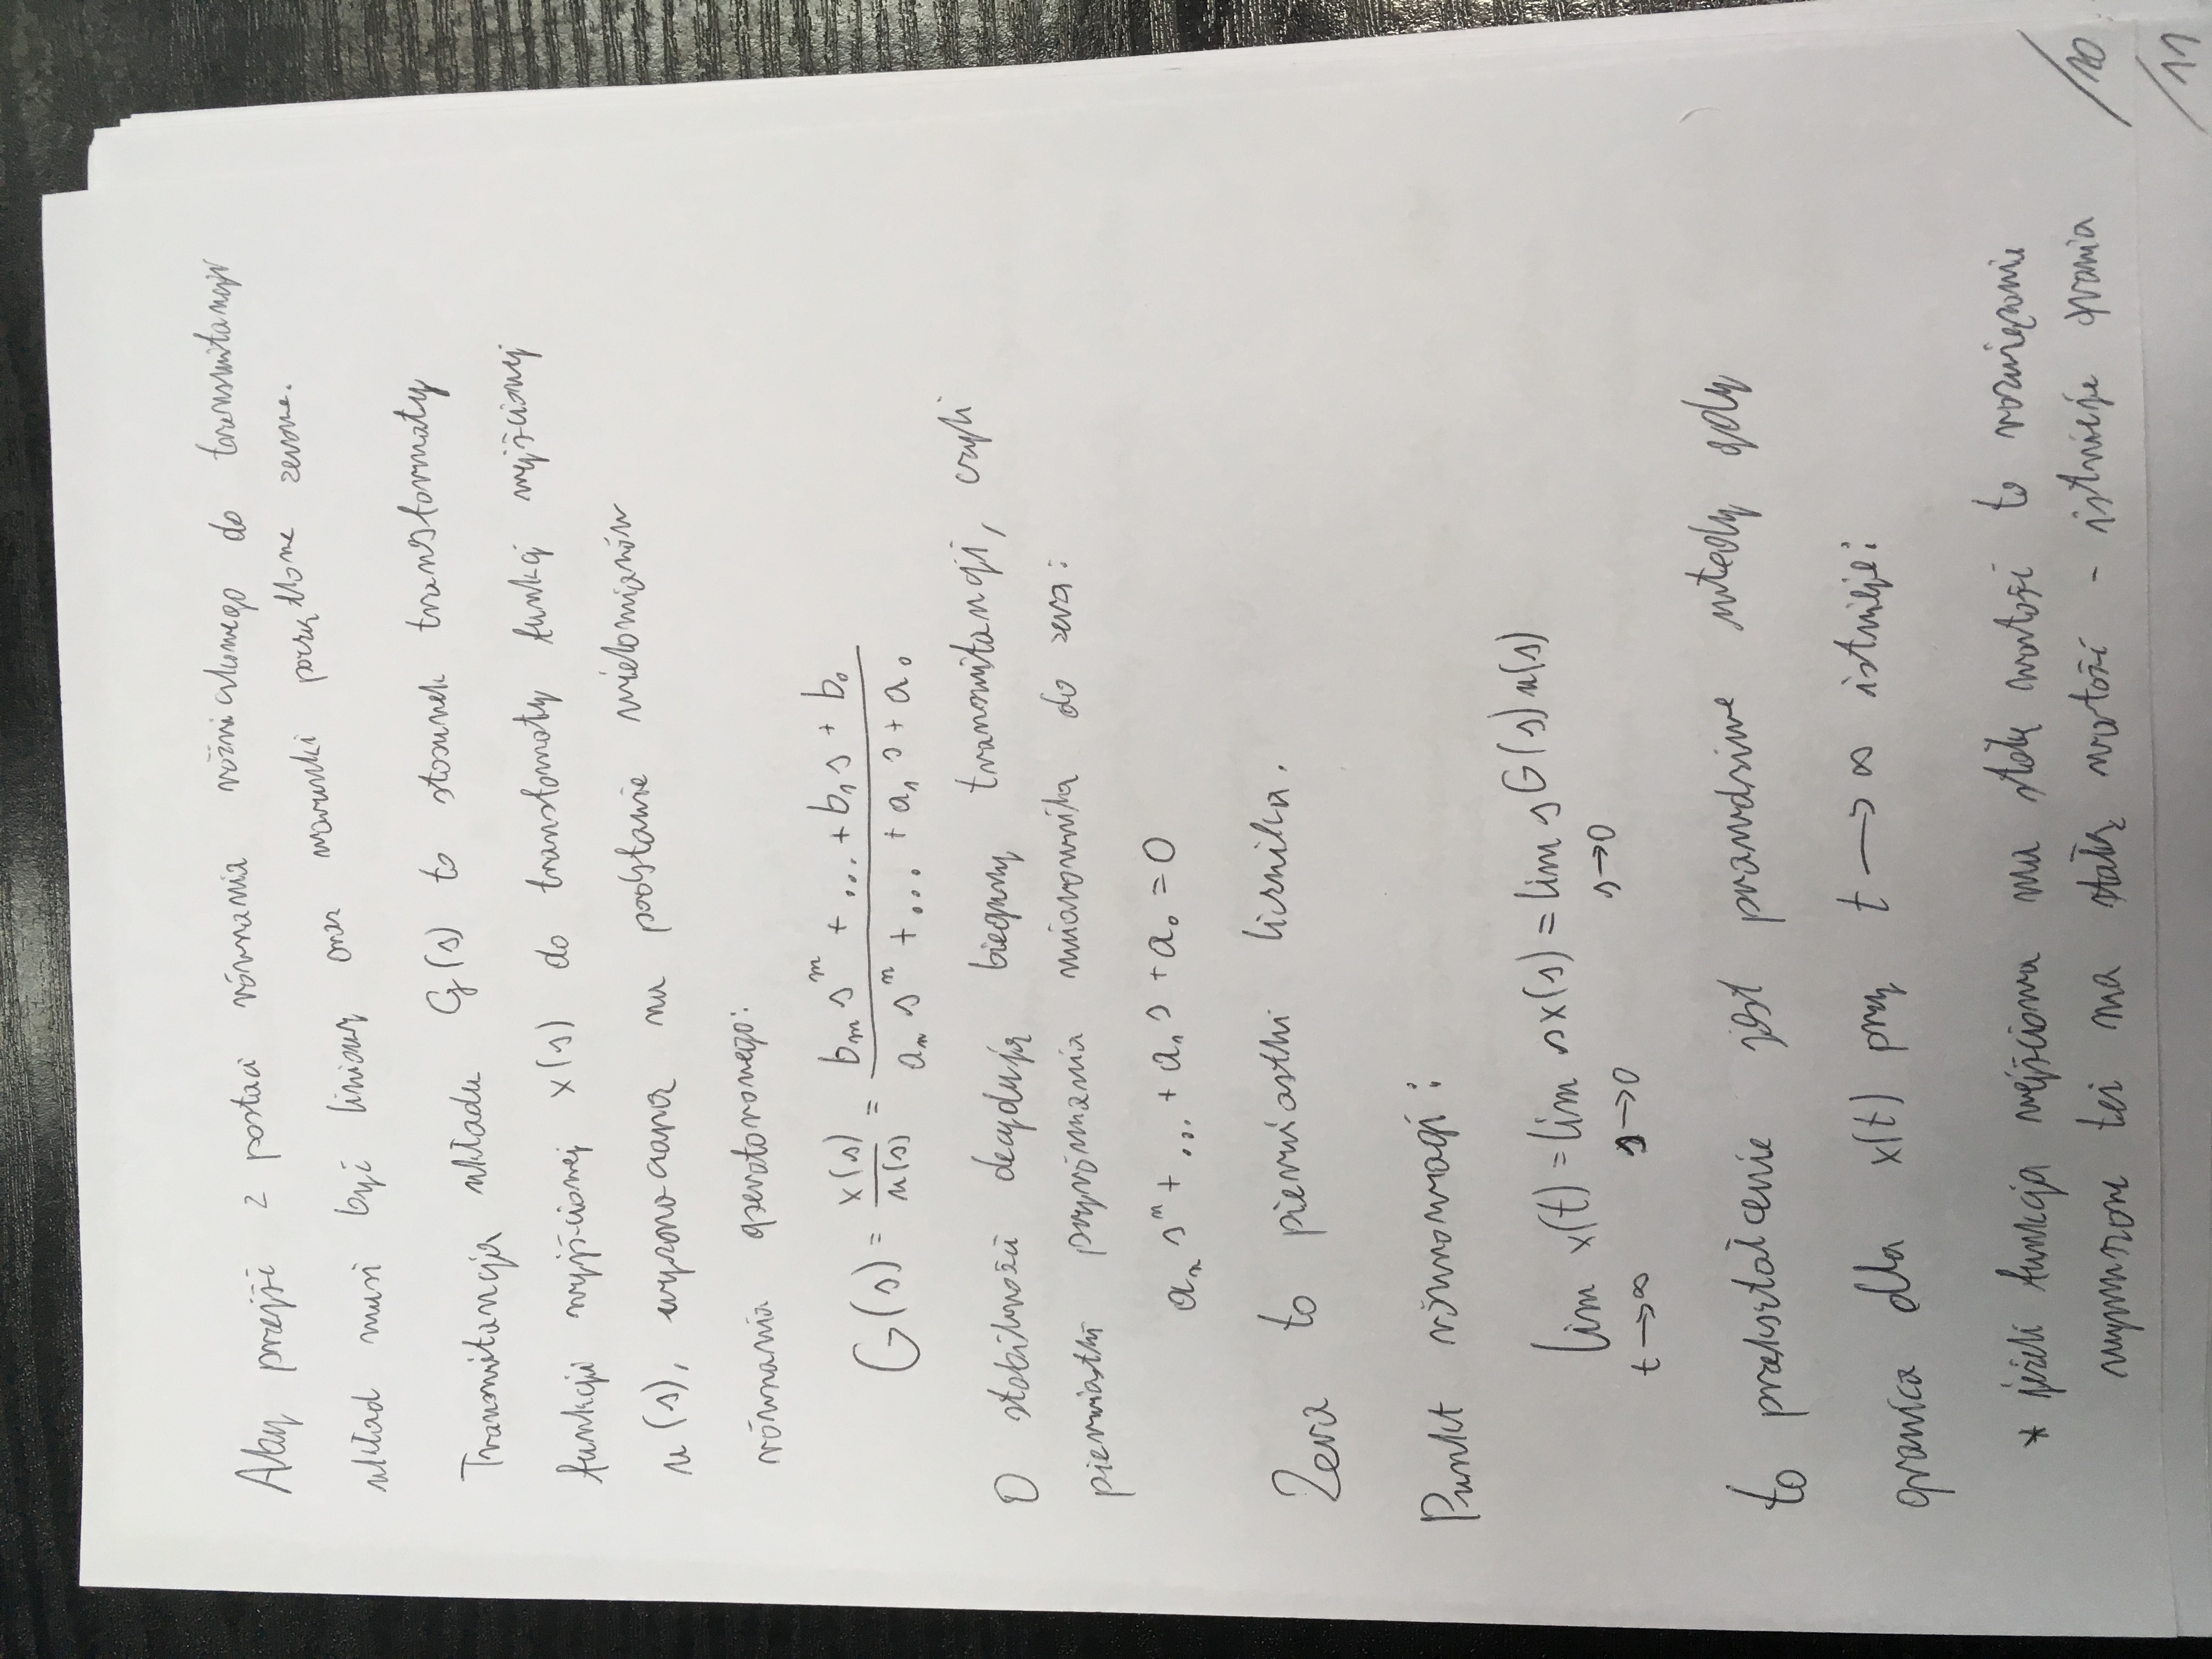 Aby przejść z postaci równania różniczkowego do transmitancji
układ musi być liniowy oraz warunki początkowe zerowe.
Transmitancja układu G(s) to stosunek transformaty
funkcji wyjściowej x(s) do transformaty funkcj wejściowej
u(s), wyznaczana na podstawie wielomianów
równania operatorowego:
G(s) = x(s)/u(s) = (b_m s^m + ... + b_1 s + b_0)/(a_n s^n + ... + a_1 s + a_0)
O stabilności decydują bieguny transmitancji, czyli
pierwiastki przyrównania mianownika do zera:
a_n s^n + ... + a_1 s + a_0 = 0
Zera to pierwiastki licznika.
Punkt równowagi:
lim_{t→∞} x(t) = lim_{s→0} s x(s) = lim_{s→0} s G(s) u(s)
to przekształcenie jest prawdziwe wtedy gdy
granica dla x(t) przy t → ∞ istnieje:
* jeżeli funkcja wejściowa ma stałą wartość to rozwiązanie
wymuszone też ma stałą wartość - istnieje grania
/10
/11